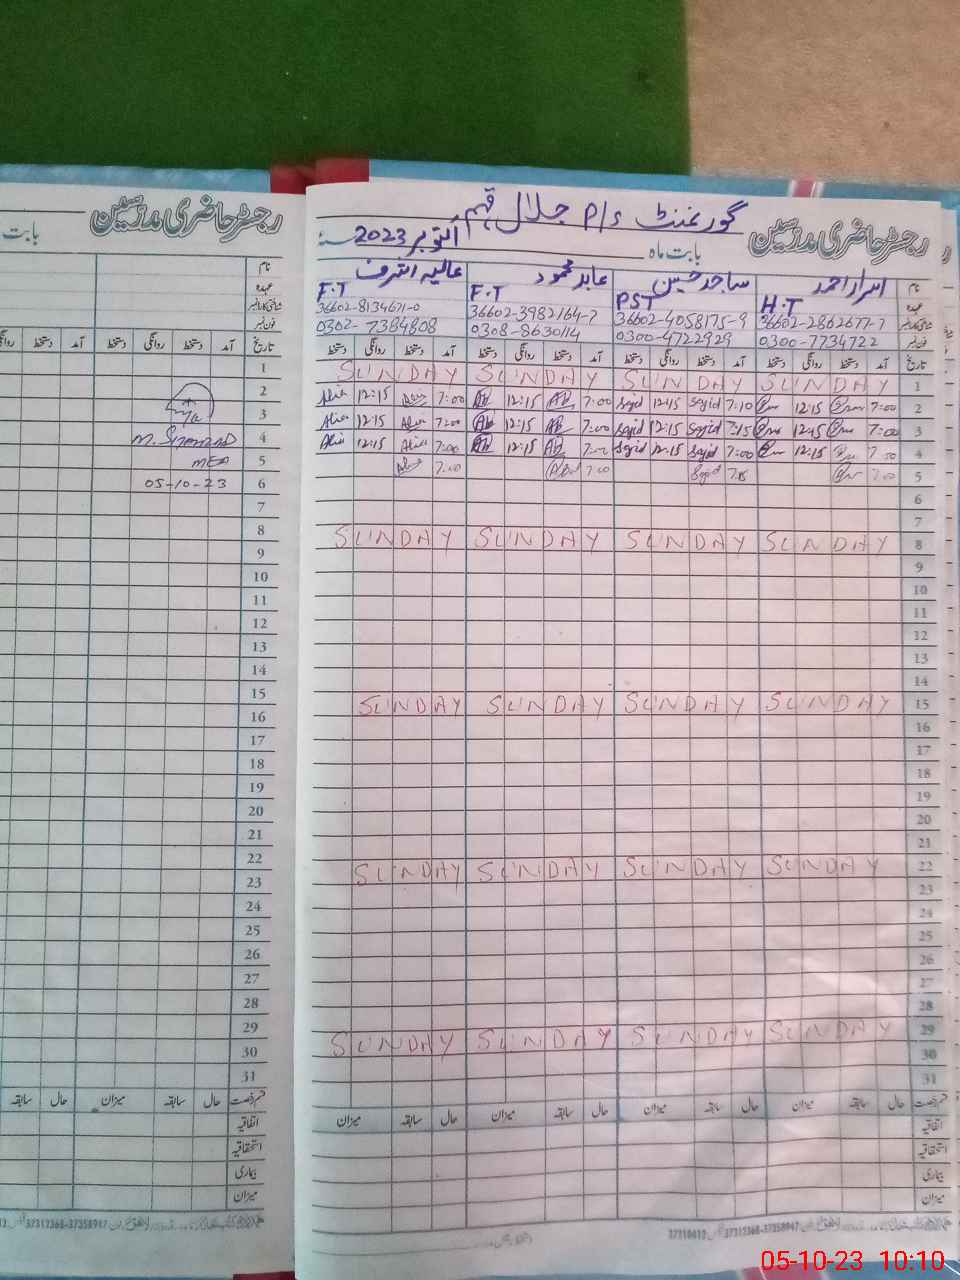 رجسٹر حاضری مدرسین
بابت
نام
عہدہ
شناختی کارڈ نمبر
فون نمبر
تاریخ آمد دستخط روانگی دستخط آمد دستخط روانگی
1
2
3
M. Shahzad 4
MEA 5
05-10-23 6
7
8
9
10
11
12
13
14
15
16
17
18
19
20
21
22
23
24
25
26
27
28
29
30
31
قسم رخصت حال سابقہ میزان حال سابقہ
اتفاقیہ
استحقاقیہ
بیماری
میزان
گورنمنٹ P/S جلال
رجسٹر حاضری مدرسین
بابت ماہ اکتوبر 2023
نام اسرار احمد ساجد حسین عابد محمود عالیہ اشرف
عہدہ H.T PST F.T F.T
شناختی کارڈ نمبر 36602-2862677-7 36602-4058175-9 36602-3982164-7 36602-8134671-0
فون نمبر 0300-7734722 0300-4722929 0308-8630114 0302-7384808
تاریخ آمد دستخط روانگی دستخط آمد دستخط روانگی دستخط آمد دستخط روانگی دستخط آمد دستخط روانگی دستخط
1 SUNDAY SUNDAY SUNDAY SUNDAY
2 7:00 12:15 7:10 Sajid 12:15 Sajid 7:00 12:15 7:00 12:15 Alia
3 7:00 12:15 7:15 Sajid 12:15 Sajid 7:00 12:15 7:00 Alia 12:15 Alia
4 7:00 12:15 7:00 Sajid 12:15 Sajid 7:00 12:15 7:00 Alia 12:15 Alia
5 7:00 7:15 Sajid 7:00 7:00
6
7
8 SUNDAY SUNDAY SUNDAY SUNDAY
9
10
11
12
13
14
15 SUNDAY SUNDAY SUNDAY SUNDAY
16
17
18
19
20
21
22 SUNDAY SUNDAY SUNDAY SUNDAY
23
24
25
26
27
28
29 SUNDAY SUNDAY SUNDAY SUNDAY
30
31
قسم رخصت حال سابقہ میزان حال سابقہ میزان حال سابقہ میزان حال سابقہ میزان
اتفاقیہ
استحقاقیہ
بیماری
میزان
05-10-23 10:10